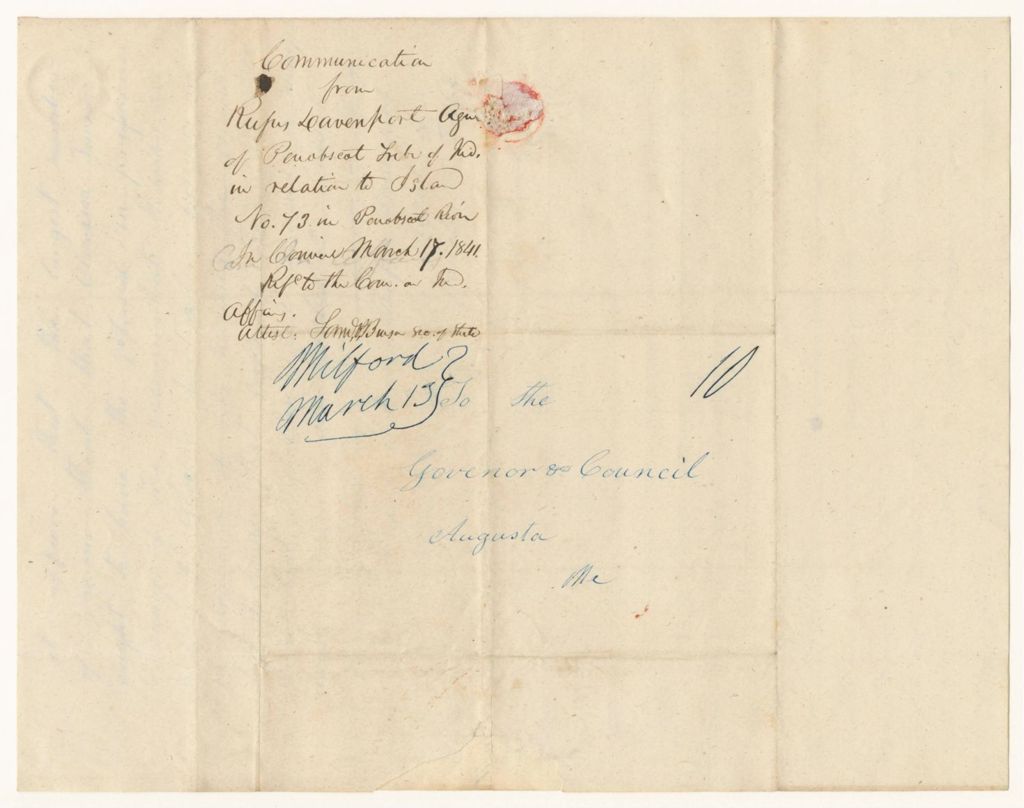 Communication
from
Rufus Davenport Agen
of Penobscot Tribe of Ind.
in relation to Islan
No. 73 in Penobscot River
In Council March 17. 1841.
Ref to the Com. on Ind.
Affairs.
Attest. Saml P Benson Sec. of State
Milford
March 13
To the
10
Govenor & Council
Augusta
Me